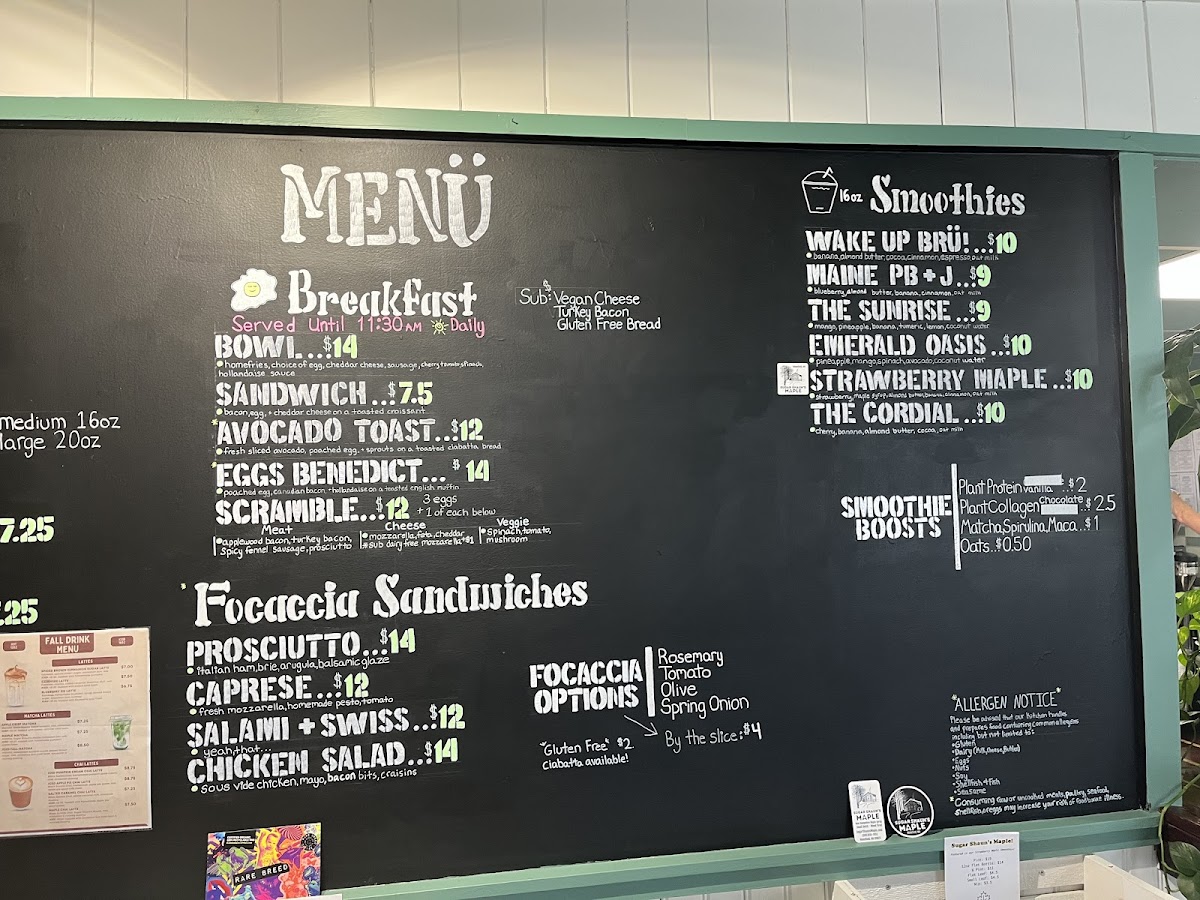 MENÜ
Breakfast
Served Until 11:30 AM Daily
Sub: Vegan Cheese
Turkey Bacon
Gluten Free Bread
BOWL...$14
• homefries, choice of egg, cheddar cheese, sausage, cherry tomato, spinach,
hollandaise sauce
SANDWICH..$7.5
• bacon, egg, + cheddar cheese on a toasted croissant
*AVOCADO TOAST..$12
• fresh sliced avocado, poached egg, + sprouts on a toasted ciabatta bread
*EGGS BENEDICT...$14
• poached egg, canadian bacon + hollandaise on a toasted english muffin
SCRAMBLE..$12 3 eggs
+ 1 of each below
Meat
• applewood bacon, turkey bacon,
spicy fennel sausage, prosciutto
Cheese
• mozzarella, feta, cheddar
*sub dairy free mozzarella +$1
Veggie
• spinach, tomato,
mushroom
* Focaccia Sandwiches
PROSCIUTTO..$14
• italian ham, brie, arugula, balsamic glaze
CAPRESE...$12
• fresh mozzarella, homemade pesto, tomato
SALAMI + SWISS..$12
• yeah, that...
CHICKEN SALAD..$14
• sous vide chicken, mayo, bacon bits, craisins
FOCACCIA
OPTIONS
Rosemary
Tomato
Olive
Spring Onion
By the slice: $4
*Gluten Free* $2
Ciabatta available!
16oz Smoothies
WAKE UP BRÜ!...$10
• banana, almond butter, cocoa, cinnamon, espresso, oat milk
MAINE PB + J..$9
• blueberry, almond butter, banana, cinnamon, oat milk
THE SUNRISE ..$9
• mango, pineapple, banana, tumeric, lemon, coconut water
EMERALD OASIS ..$10
• pineapple, mango, spinach, avocado, coconut water
STRAWBERRY MAPLE ..$10
• strawberry, maple syrup, almond butter, banana, cinnamon, oat milk
THE CORDIAL ..$10
• cherry, banana, almond butter, cocoa, oat milk
SMOOTHIE
BOOSTS
Plant Protein vanilla ..$2
Plant Collagen Chocolate ..$2.5
Matcha, Spirulina, Maca..$1
Oats..$0.50
*ALLERGEN NOTICE*
Please be advised that our kitchen handles
and prepares food containing common allergens
including but not limited to:
• Gluten
• Eggs
• Nuts
• Soy
• Shellfish + fish
• Sesame
* Consuming raw or uncooked meats, poultry, seafood,
shellfish, or eggs may increase your risk of foodborne illness.
medium 16oz
large 20oz
7.25
.25
FALL DRINK
MENU
LATTES
MATCHA LATTES
CHAI LATTES
RARE BREED
SUGAR SHAUN'S
MAPLE
SUGAR SHAUN'S
MAPLE
Sugar Shaun's Maple!